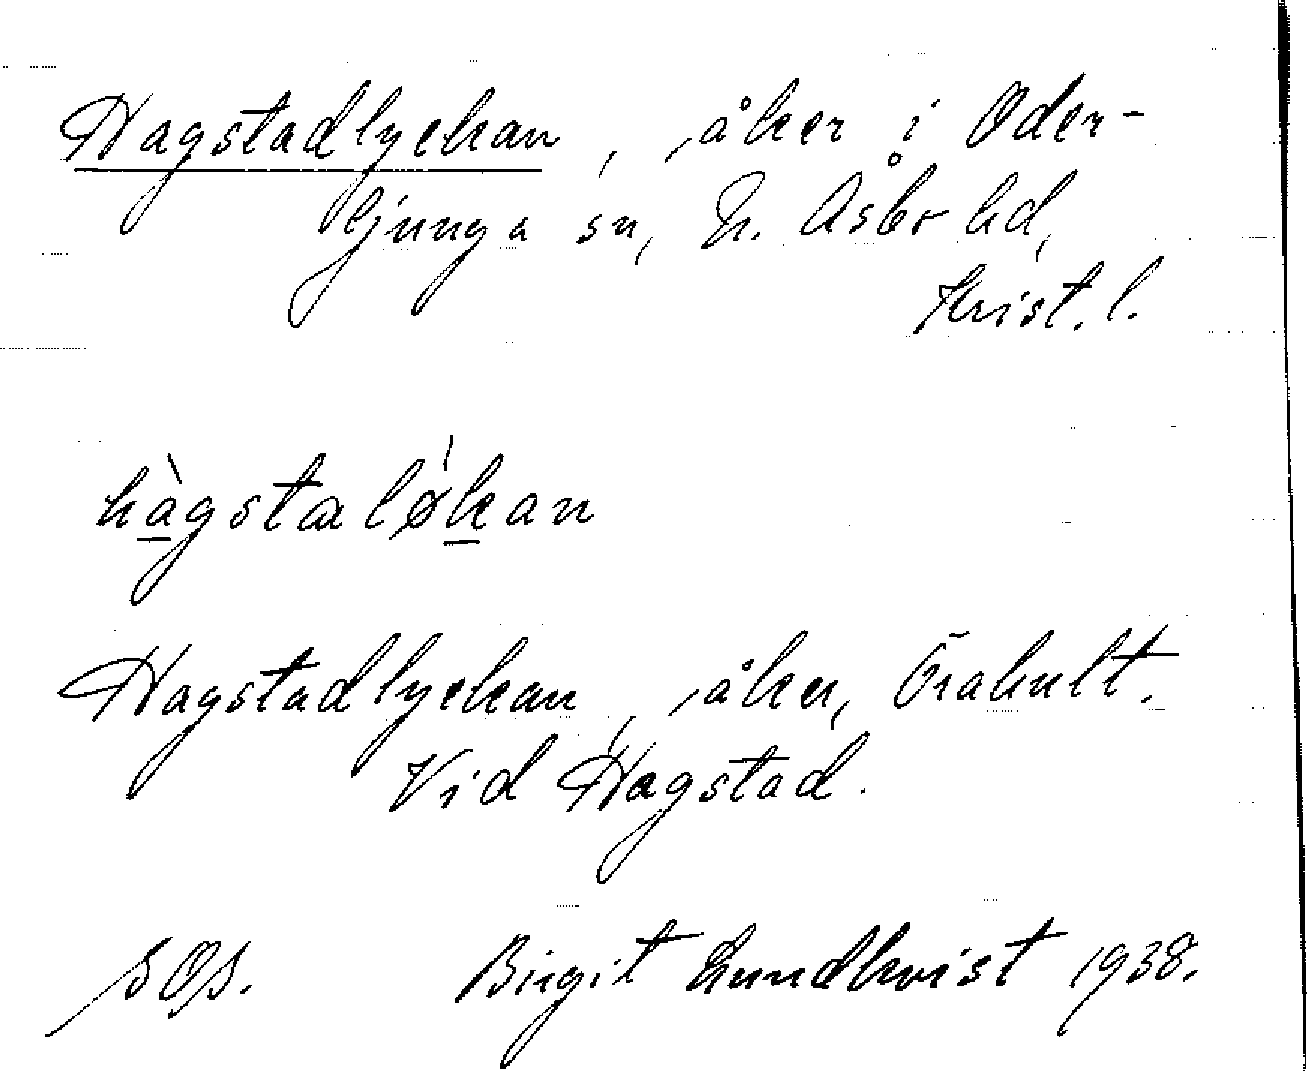 Hagstadlyckan, åker i Oder-
ljunga sn, N. Åsbo hd,
Krist. l.
hàgstaløkan
Hagstadlyckan, åker, Örakult.
Vid Hagstad.
SOS. Birgit Lundkvist 1938.